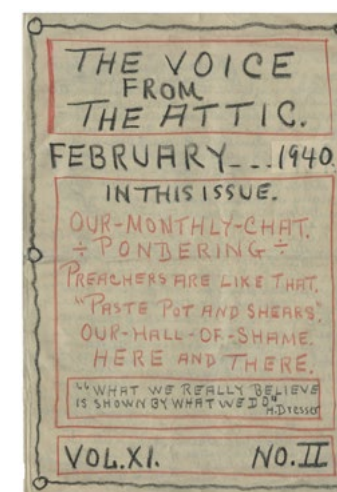 THE VOICE
FROM
THE ATTIC.
FEBRUARY---1940.
IN THIS ISSUE.
OUR-MONTHLY-CHAT.
÷ PONDERING ÷
PREACHERS ARE LIKE THAT.
"PASTE POT AND SHEARS."
OUR-HALL-OF-SHAME.
HERE AND THERE.
"WHAT WE REALLY BELIEVE
IS SHOWN BY WHAT WE DO"
H.Dresser
VOL.XI. NO.II